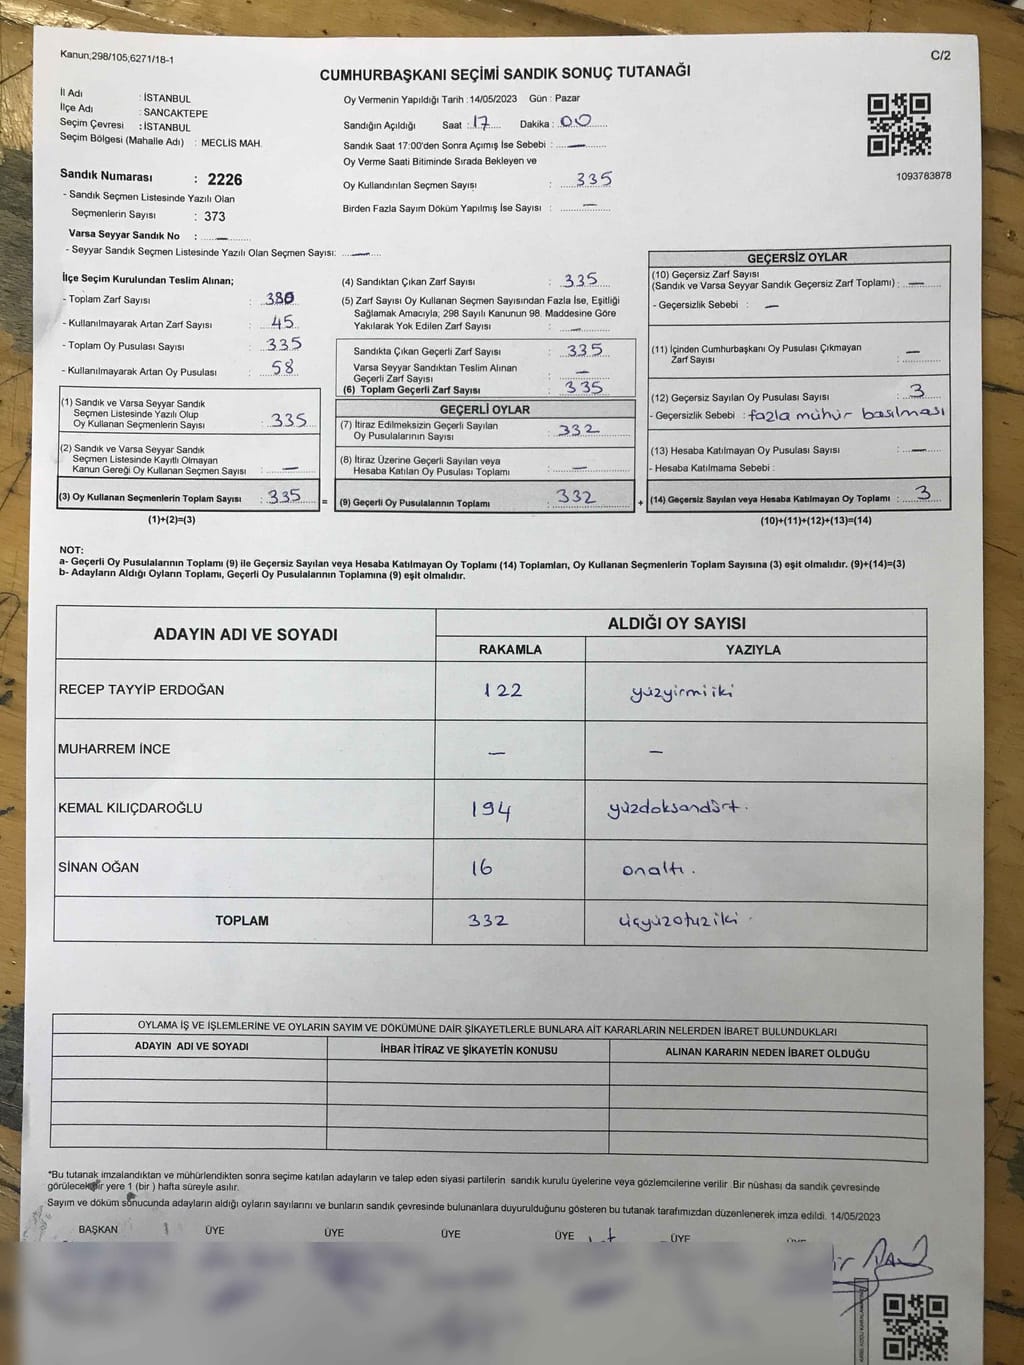 Kanun;298/105;6271/18-1
C/2
CUMHURBAŞKANI SEÇİMİ SANDIK SONUÇ TUTANAĞI
İl Adı : İSTANBUL
İlçe Adı : SANCAKTEPE
Seçim Çevresi : İSTANBUL
Seçim Bölgesi (Mahalle Adı) : MECLİS MAH.
Sandık Numarası : 2226
- Sandık Seçmen Listesinde Yazılı Olan
Seçmenlerin Sayısı : 373
Varsa Seyyar Sandık No : —
- Seyyar Sandık Seçmen Listesinde Yazılı Olan Seçmen Sayısı: —
Oy Vermenin Yapıldığı Tarih : 14/05/2023 Gün : Pazar
Sandığın Açıldığı Saat : 17 Dakika : 00
Sandık Saat 17:00'den Sonra Açımış İse Sebebi : —
Oy Verme Saati Bitiminde Sırada Bekleyen ve
Oy Kullandırılan Seçmen Sayısı : 335
Birden Fazla Sayım Döküm Yapılmış İse Sayısı : —
1093783878
İlçe Seçim Kurulundan Teslim Alınan;
- Toplam Zarf Sayısı : 380
- Kullanılmayarak Artan Zarf Sayısı : 45
- Toplam Oy Pusulası Sayısı : 335
- Kullanılmayarak Artan Oy Pusulası : 58
(1) Sandık ve Varsa Seyyar Sandık
Seçmen Listesinde Yazılı Olup
Oy Kullanan Seçmenlerin Sayısı : 335
(2) Sandık ve Varsa Seyyar Sandık
Seçmen Listesinde Kayıtlı Olmayan
Kanun Gereği Oy Kullanan Seçmen Sayısı : —
(3) Oy Kullanan Seçmenlerin Toplam Sayısı : 335 =
(1)+(2)=(3)
(4) Sandıktan Çıkan Zarf Sayısı : 335
(5) Zarf Sayısı Oy Kullanan Seçmen Sayısından Fazla İse, Eşitliği
Sağlamak Amacıyla; 298 Sayılı Kanunun 98. Maddesine Göre
Yakılarak Yok Edilen Zarf Sayısı : —
Sandıkta Çıkan Geçerli Zarf Sayısı : 335
Varsa Seyyar Sandıktan Teslim Alınan
Geçerli Zarf Sayısı : —
(6) Toplam Geçerli Zarf Sayısı : 335
GEÇERLİ OYLAR
(7) İtiraz Edilmeksizin Geçerli Sayılan
Oy Pusulalarının Sayısı : 332
(8) İtiraz Üzerine Geçerli Sayılan veya
Hesaba Katılan Oy Pusulası Toplamı : —
(9) Geçerli Oy Pusulalarının Toplamı : 332 +
GEÇERSİZ OYLAR
(10) Geçersiz Zarf Sayısı
(Sandık ve Varsa Seyyar Sandık Geçersiz Zarf Toplamı) : —
- Geçersizlik Sebebi : —
(11) İçinden Cumhurbaşkanı Oy Pusulası Çıkmayan
Zarf Sayısı : —
(12) Geçersiz Sayılan Oy Pusulası Sayısı : 3
- Geçersizlik Sebebi : fazla mühür basılması
(13) Hesaba Katılmayan Oy Pusulası Sayısı : —
- Hesaba Katılmama Sebebi :
(14) Geçersiz Sayılan veya Hesaba Katılmayan Oy Toplamı : 3
(10)+(11)+(12)+(13)=(14)
NOT:
a- Geçerli Oy Pusulalarının Toplamı (9) ile Geçersiz Sayılan veya Hesaba Katılmayan Oy Toplamı (14) Toplamları, Oy Kullanan Seçmenlerin Toplam Sayısına (3) eşit olmalıdır. (9)+(14)=(3)
b- Adayların Aldığı Oyların Toplamı, Geçerli Oy Pusulalarının Toplamına (9) eşit olmalıdır.
ADAYIN ADI VE SOYADI
ALDIĞI OY SAYISI
RAKAMLA YAZIYLA
RECEP TAYYİP ERDOĞAN 122 yüzyirmiiki
MUHARREM İNCE — —
KEMAL KILIÇDAROĞLU 194 yüzdoksandört.
SİNAN OĞAN 16 onaltı.
TOPLAM 332 üçyüzotuziki.
OYLAMA İŞ VE İŞLEMLERİNE VE OYLARIN SAYIM VE DÖKÜMÜNE DAİR ŞİKAYETLERLE BUNLARA AİT KARARLARIN NELERDEN İBARET BULUNDUKLARI
ADAYIN ADI VE SOYADI İHBAR İTİRAZ VE ŞİKAYETİN KONUSU ALINAN KARARIN NEDEN İBARET OLDUĞU
*Bu tutanak imzalandıktan ve mühürlendikten sonra seçime katılan adayların ve talep eden siyasi partilerin sandık kurulu üyelerine veya gözlemcilerine verilir. Bir nüshası da sandık çevresinde
görülecek bir yere 1 (bir ) hafta süreyle asılır.
Sayım ve döküm sonucunda adayların aldığı oyların sayılarını ve bunların sandık çevresinde bulunanlara duyurulduğunu gösteren bu tutanak tarafımızdan düzenlenerek imza edildi. 14/05/2023
BAŞKAN ÜYE ÜYE ÜYE ÜYE ÜYE